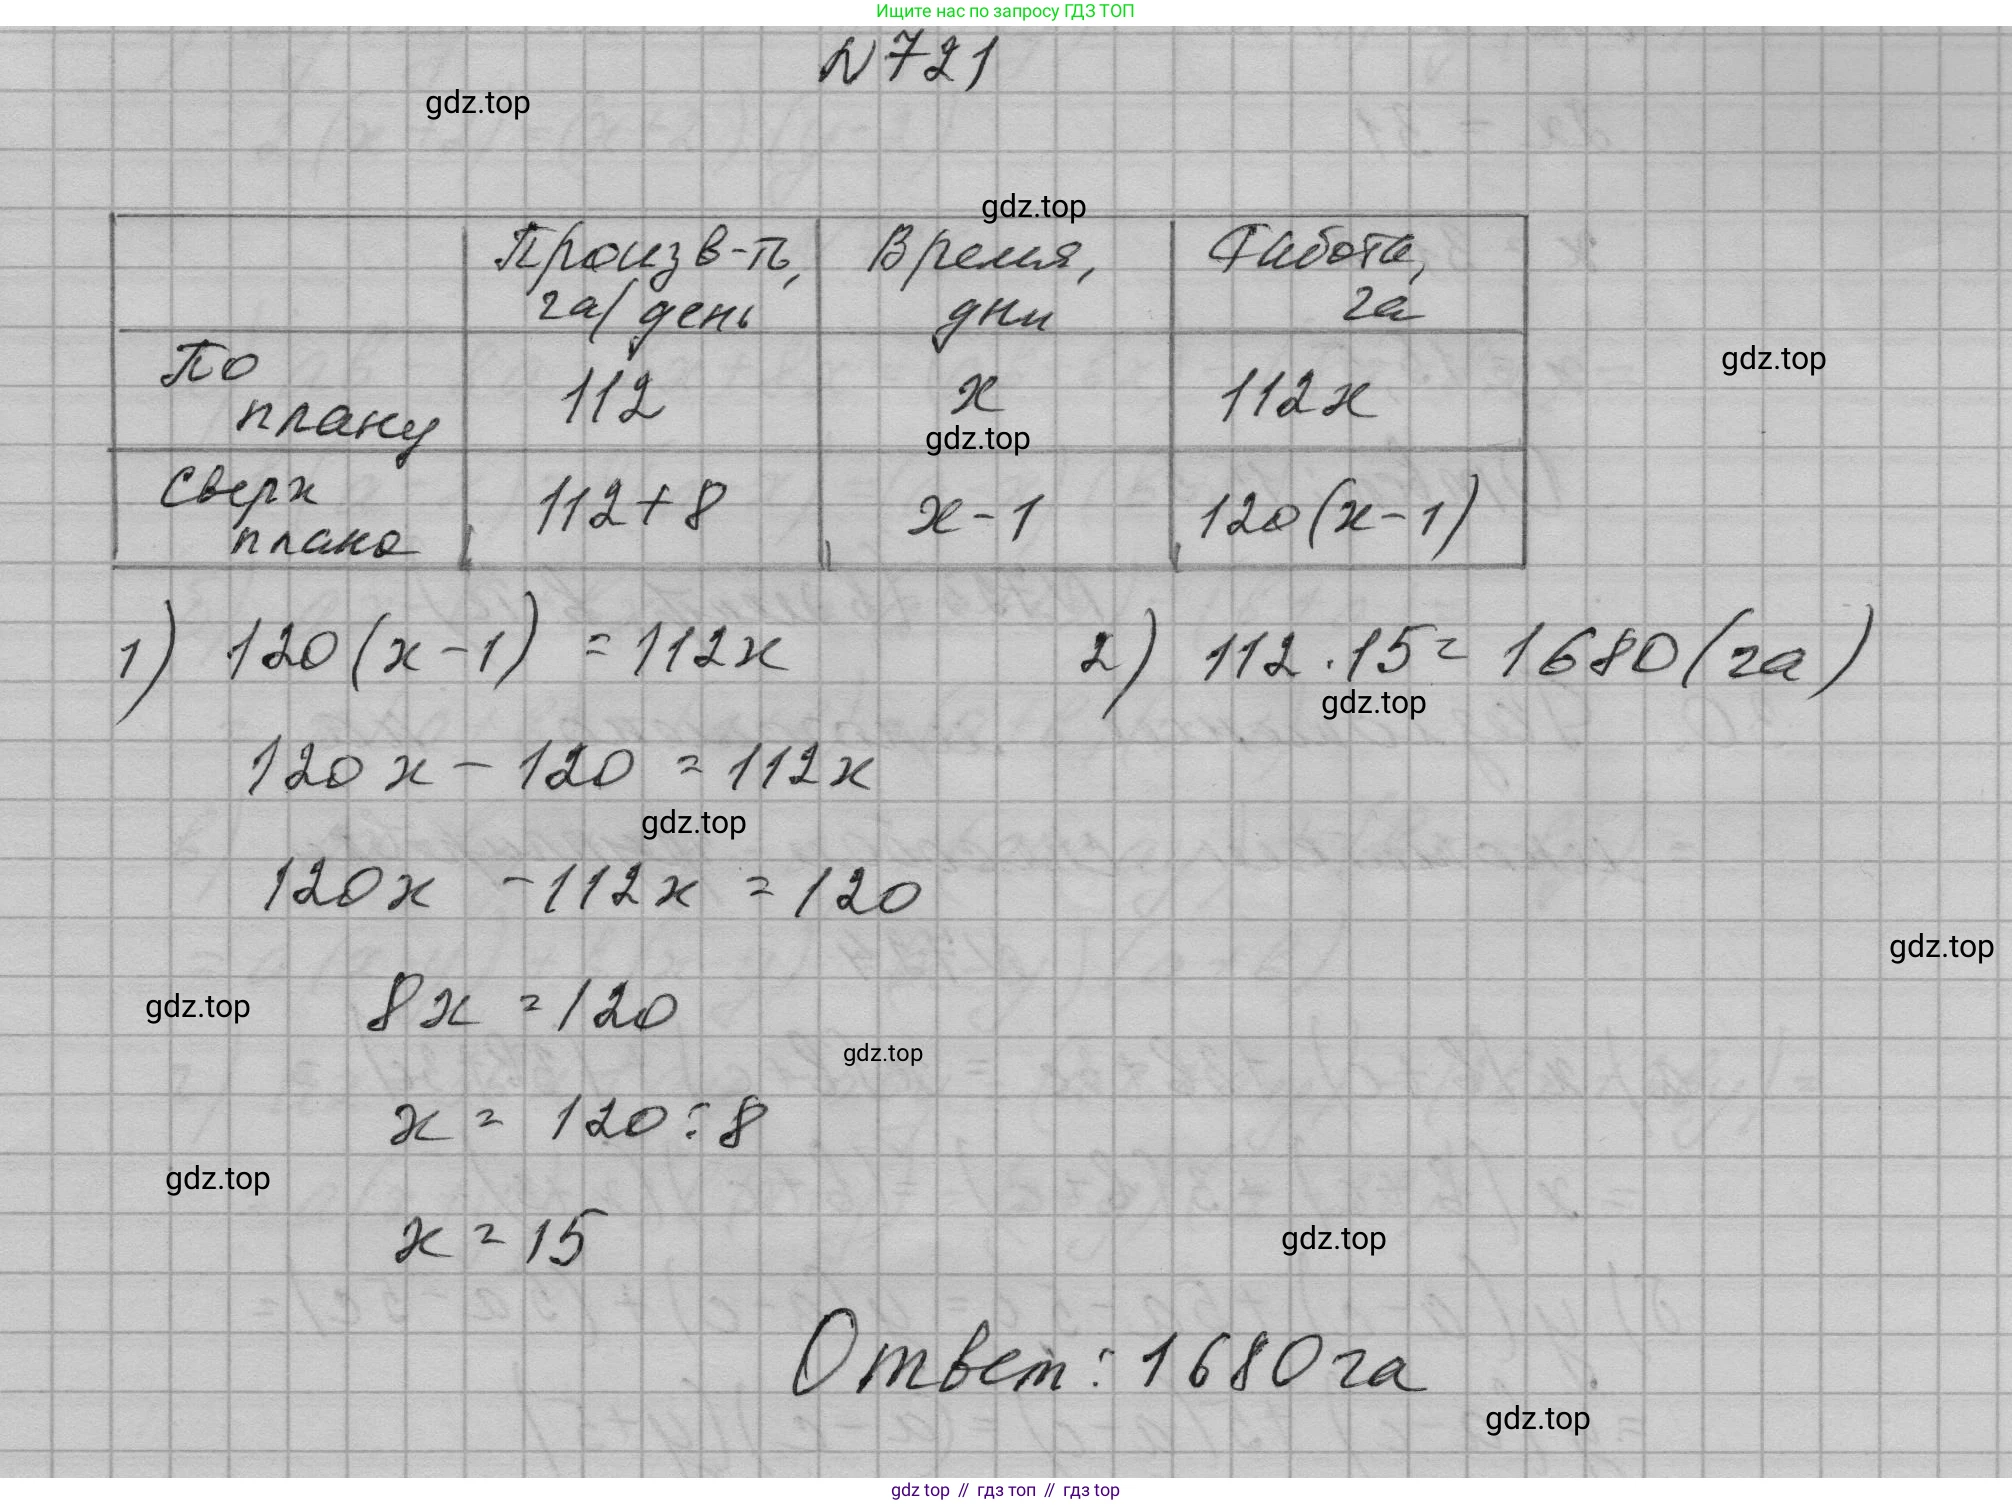 Ищите нас по запросу ГДЗ ТОП
№ 721
gdz.top
gdz.top
Произв-ть, га/день
Время, дни
Работа, га
По плану
112
x
112x
gdz.top
gdz.top
Сверх плана
112+8
x-1
120(x-1)
1) 120(x-1) = 112x
2) 112·15= 1680(га)
gdz.top
120x - 120 = 112x
gdz.top
120x - 112x = 120
gdz.top
8x = 120
gdz.top
gdz.top
x = 120:8
gdz.top
x = 15
gdz.top
Ответ: 1680 га
gdz.top
gdz top // гдз топ // гдз top